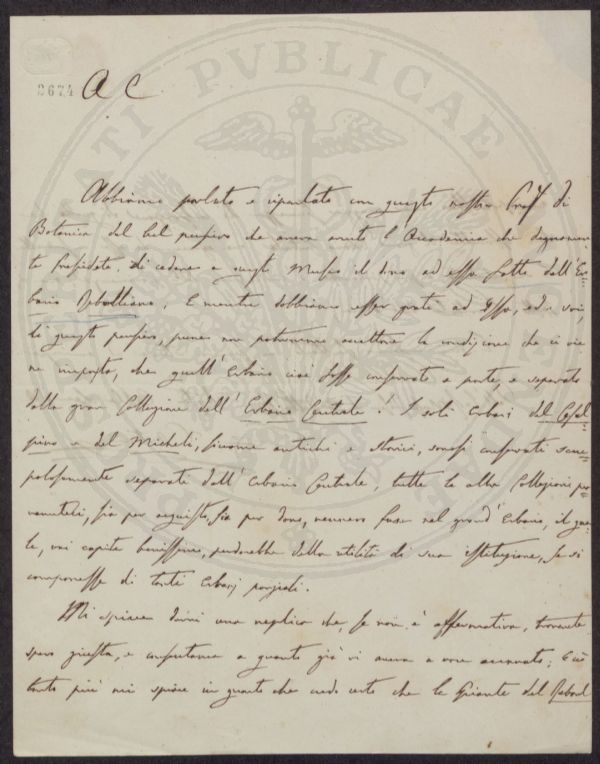 REI PVBLICAE
2674 A C
Abbiamo parlato e riparlato con questo nostro Prof. di
Botanica del bel pensiero che aveva avuto l'Accademia che degnamen-
te presiedete, di cedere a questo Museo il dono ad essa fatto dall'Er-
bario Reboulliano. E mentre dobbiamo esser grati ad Essa, ed a voi,
di questo pensiero, pure non potremmo accettare la condizione che ci vie-
ne imposta, che quell'Erbario cioè fosse conservato a parte, e separato
dalla gran Collezione dell'Erbario Centrale! I soli Erbari del Cesal-
pino e del Micheli, siccome antichi e storici, sonosi conservati scru-
polosamente separati dall'Erbario Centrale, tutte le altre Collezioni per-
venuteci, sia per acquisto, sia per dono, vennero fuse nel grand'Erbario, il qua-
le, voi capite benissimo, perderebbe della utilità di sua istituzione, se si
componesse di tanti Erbarj parziali.
Mi spiace darvi una replica che, se non è affermativa, troverete
spero giusta, e consentanea a quanto già vi aveva a voce accennato; e ciò
tanto più mi spiace in quanto che credo certo che le Piante del Reboul